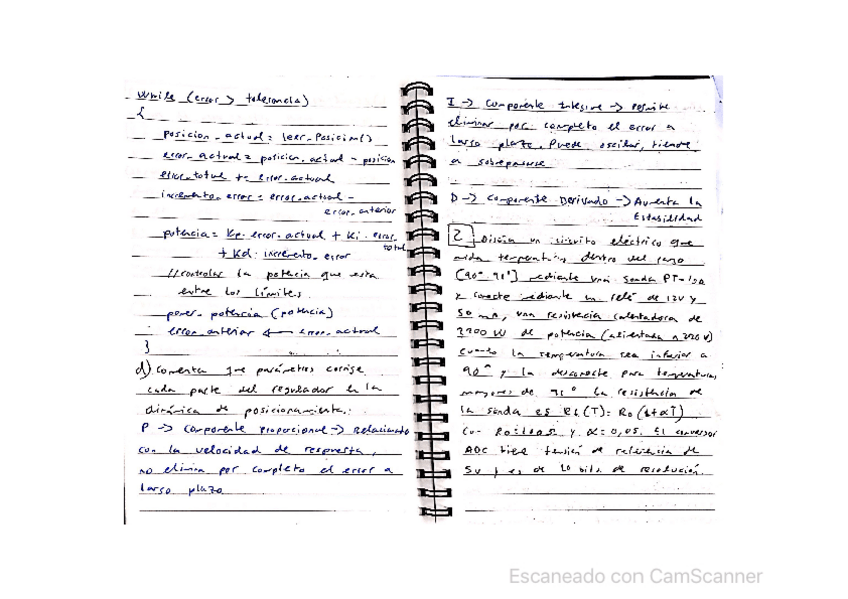 While (error > tolerancia)
{
posicion_actual = leer_Posicion()
error_actual = posicion_actual - posicion
error_total += error_actual
incremento_error = error_actual -
error_anterior
potencia = Kp · error_actual + Ki · error_
total
+ Kd · incremento_error
// controlar la potencia que esta
entre los límites.
poner_potencia (potencia)
error_anterior ← error_actual
}
d) Comenta que parámetros corrige
cada parte del regulador en la
dinámica de posicionamiento.
P → Componente proporcional → Relacionado
con la velocidad de respuesta,
no elimina por completo el error a
largo plazo
I → Componente Integral → Permite
eliminar por completo el error a
largo plazo. Puede oscilar, tiende
a sobrepasarse
D → Componente Derivado → Aumenta la
Estabilidad
2 Diseña un circuito eléctrico que
mida temperaturas dentro del rango
[90° 91°] mediante una sonda PT-100
y conecte mediante un relé de 12V y
50 mA, una resistencia calentadora de
2200 W de potencia (alimentada a 220 V)
cuando la temperatura sea inferior a
90° y la desconecte para temperaturas
mayores de 91° La resistencia de
la sonda es Rt(T) = R0 (1+αT)
Con R0=100Ω y α = 0,05. El conversor
ADC tiene tensión de referencia de
5V y es de 10 bits de resolución.
Escaneado con CamScanner